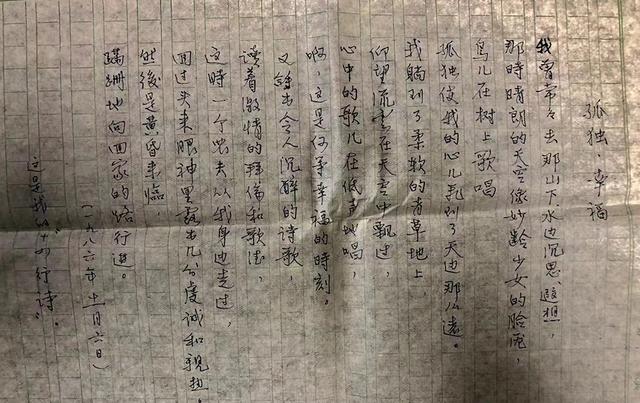 孤独、幸福
我曾常々去那山下、水边沉思、遐想，
那時晴朗的天空像妙齡少女的脸庞，
鸟儿在树上歌唱
孤独使我的心儿飛到了天边那么遠。
我躺到了柔软的青草地上，
仰望流云在天空中飘过，
心中的歌儿在低声地唱，
啊，这是何等幸福的時刻。
又铸出令人沉醉的诗歌
读着激情的拜倫和歌德，
这時一个农夫从我身边走过，
回过头来眼神里露出几分虔诚和親热。
然後是黄昏来臨，
蹒跚地向回家的路行进。
(一九八六年十一月六日)
这是我的十四行诗。